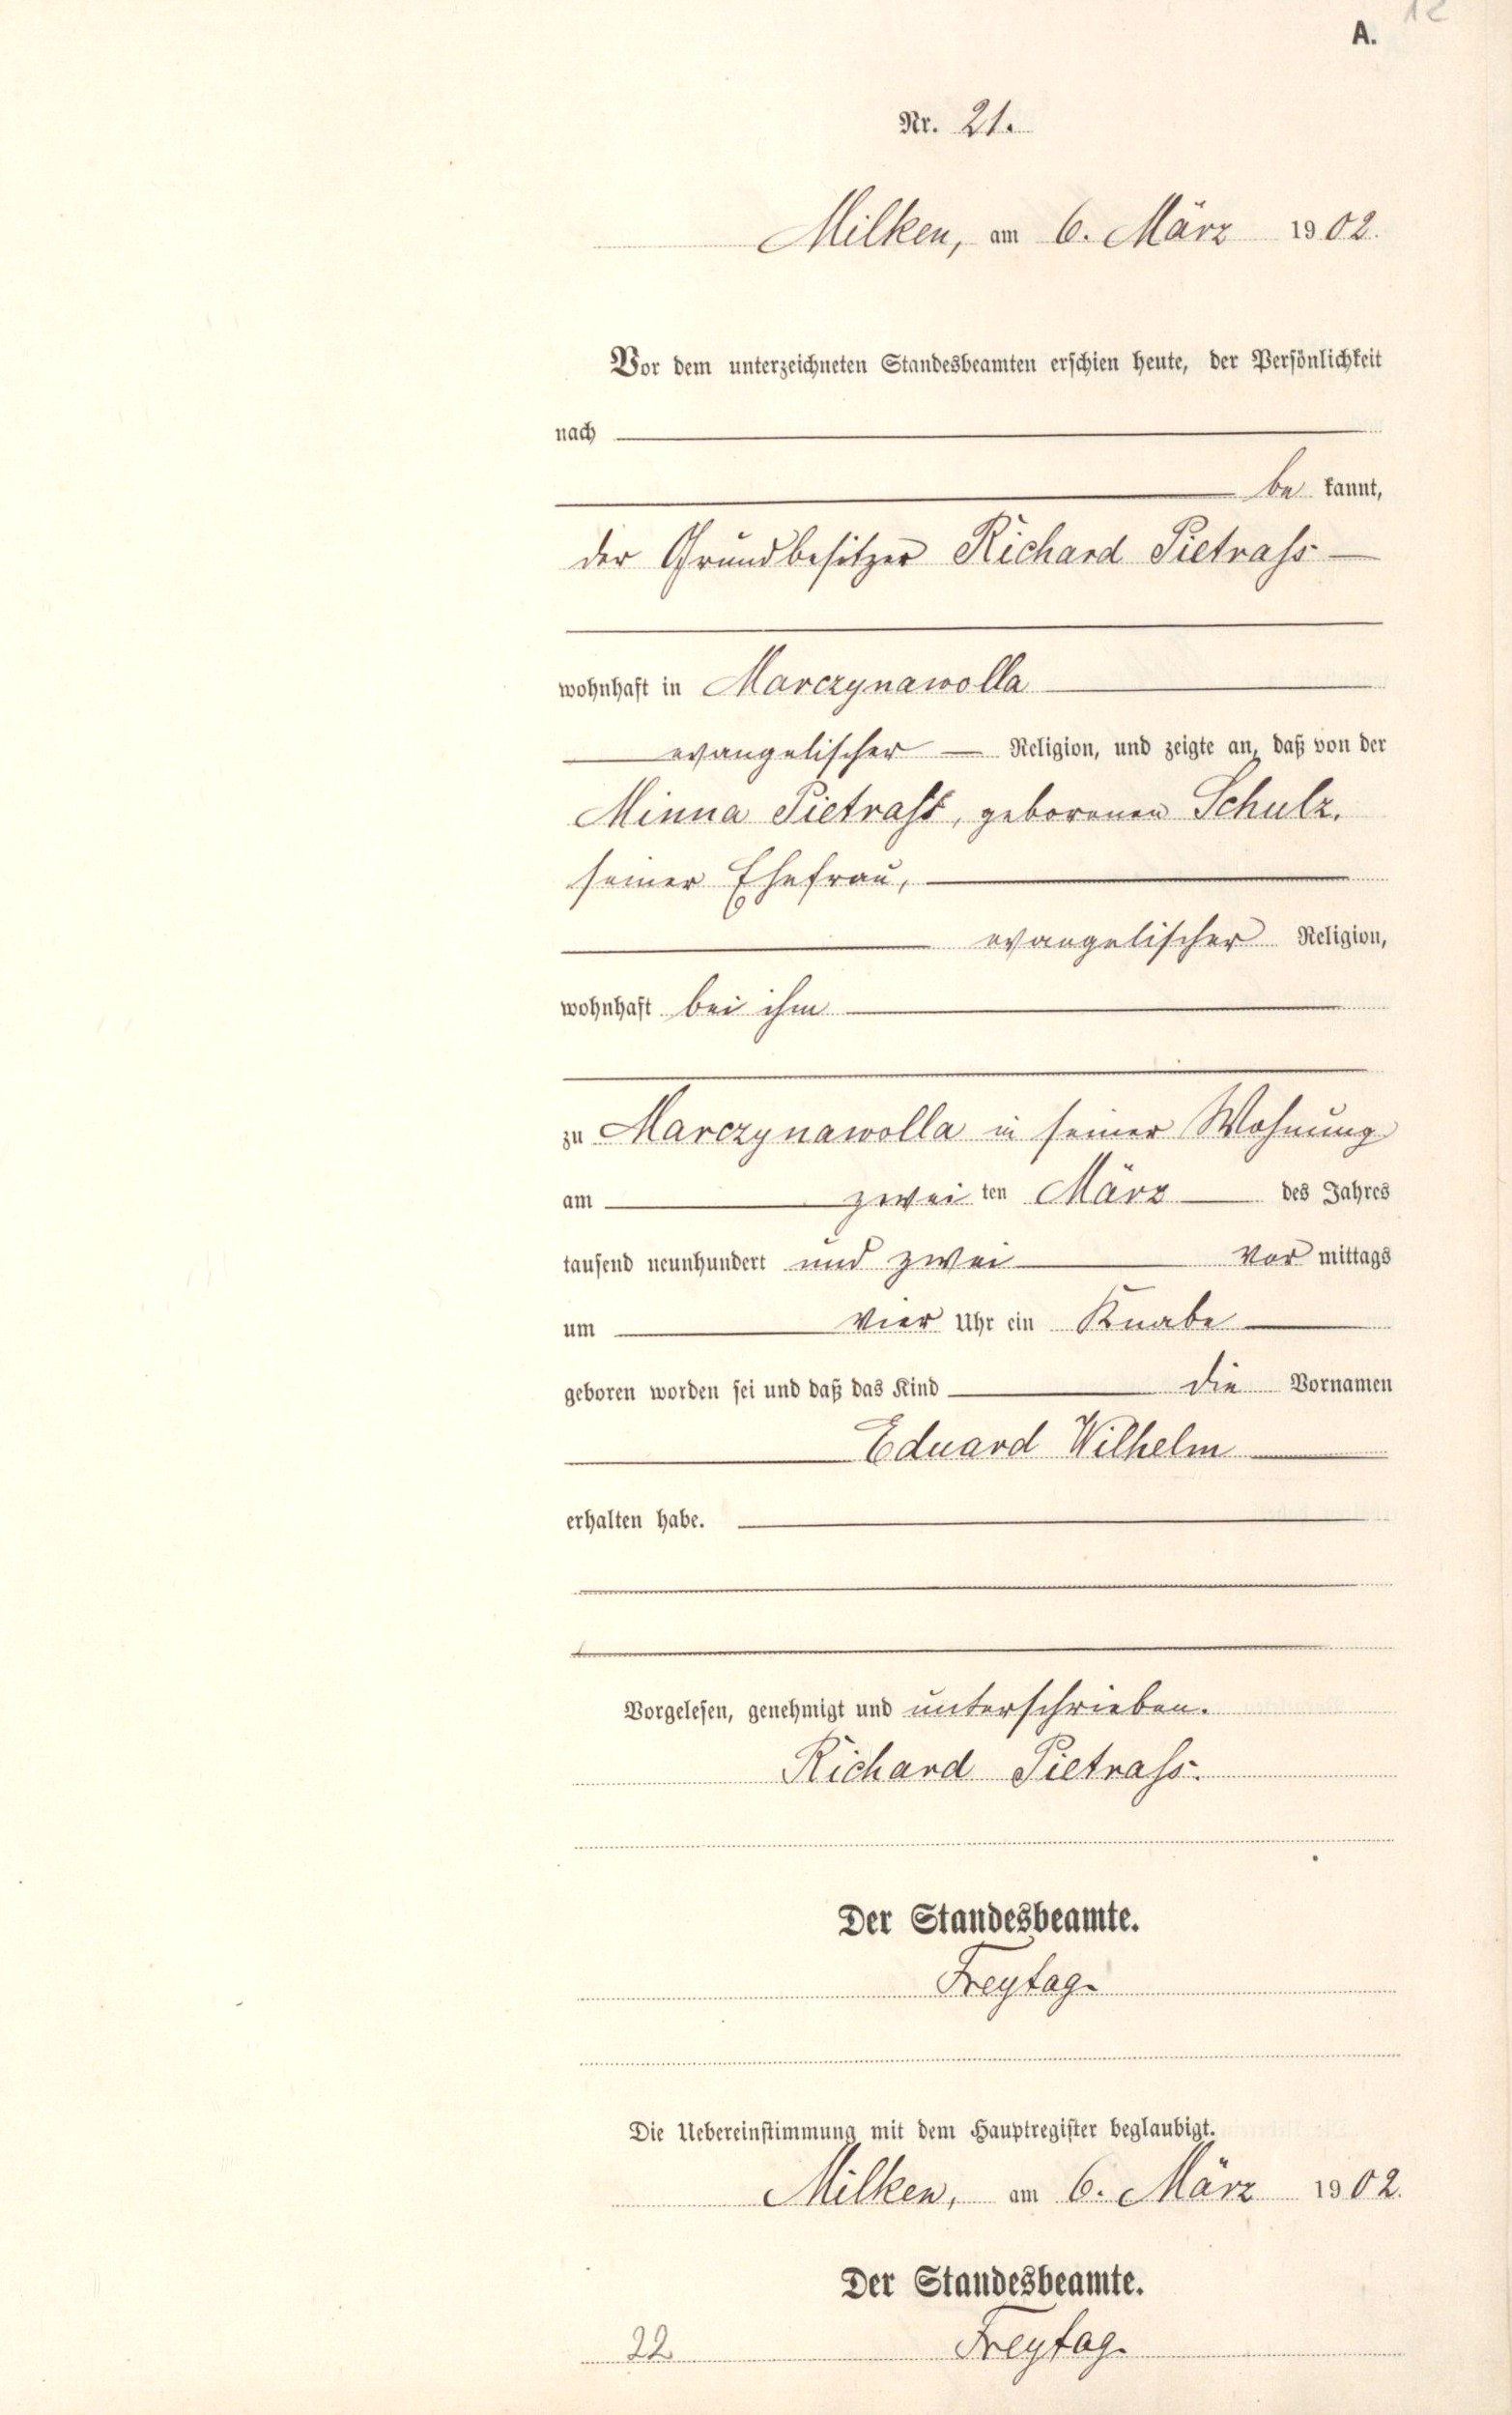 12
A.
Nr. 21.
Milken, am 6. März 1902.
Vor dem unterzeichneten Standesbeamten erschien heute, der Persönlichkeit
nach
be kannt,
der Grundbesitzer Richard Pietrass
wohnhaft in Marczynawolla
evangelischer Religion, und zeigte an, daß von der
Minna Pietrass, geborenen Schulz,
seiner Ehefrau,
evangelischer Religion,
wohnhaft bei ihm
zu Marczynawolla in seiner Wohnung
am zwei ten März des Jahres
tausend neunhundert und zwei Vor mittags
um vier Uhr ein Knabe
geboren worden sei und daß das Kind die Vornamen
Eduard Wilhelm
erhalten habe.
Vorgelesen, genehmigt und unterschrieben.
Richard Pietrass.
Der Standesbeamte.
Freytag.
Die Uebereinstimmung mit dem Hauptregister beglaubigt.
Milken, am 6. März 1902.
Der Standesbeamte.
22 Freytag.